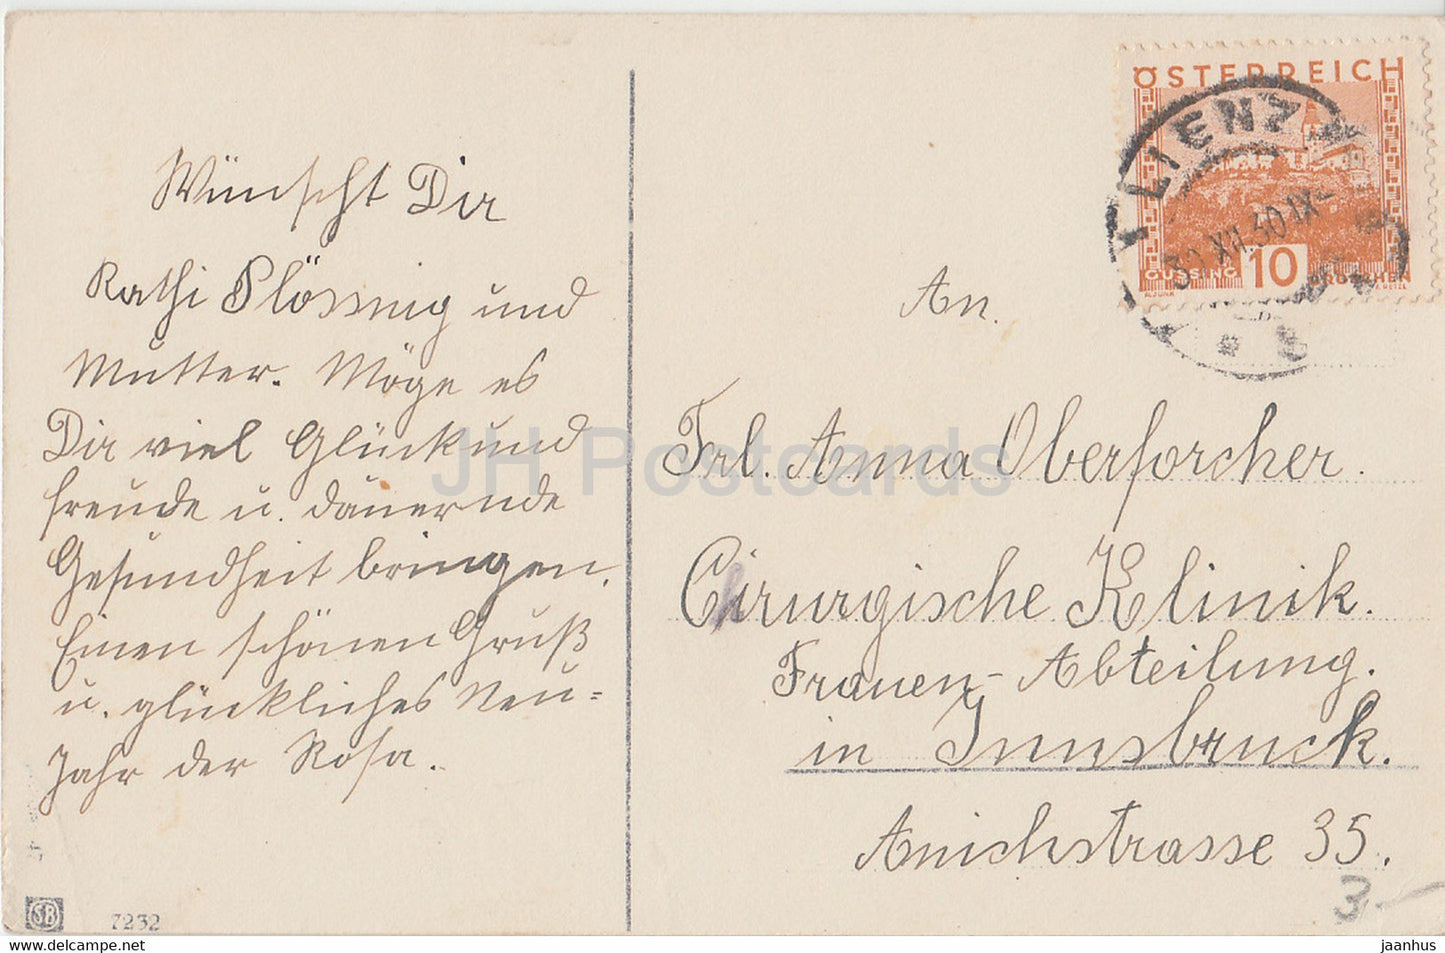 Wünscht Dir
Kathi Plössnig und
Mutter. Möge es
Dir viel Glück und
freude u. dauernde
Gesundheit bringen.
Einen schönen Gruß
u. glückliches Neu=
Jahr der Rosa.
SB 7232
ÖSTERREICH
LIENZ
XII.30 IX
GÜSSING 10 GROSCHEN
An.
Frl. Anna Oberforcher.
Cirurgische Klinik.
Frauen-Abteilung.
in Innsbruck.
Anichstrasse 35.
3.-
JH Postcards
jaanhusz